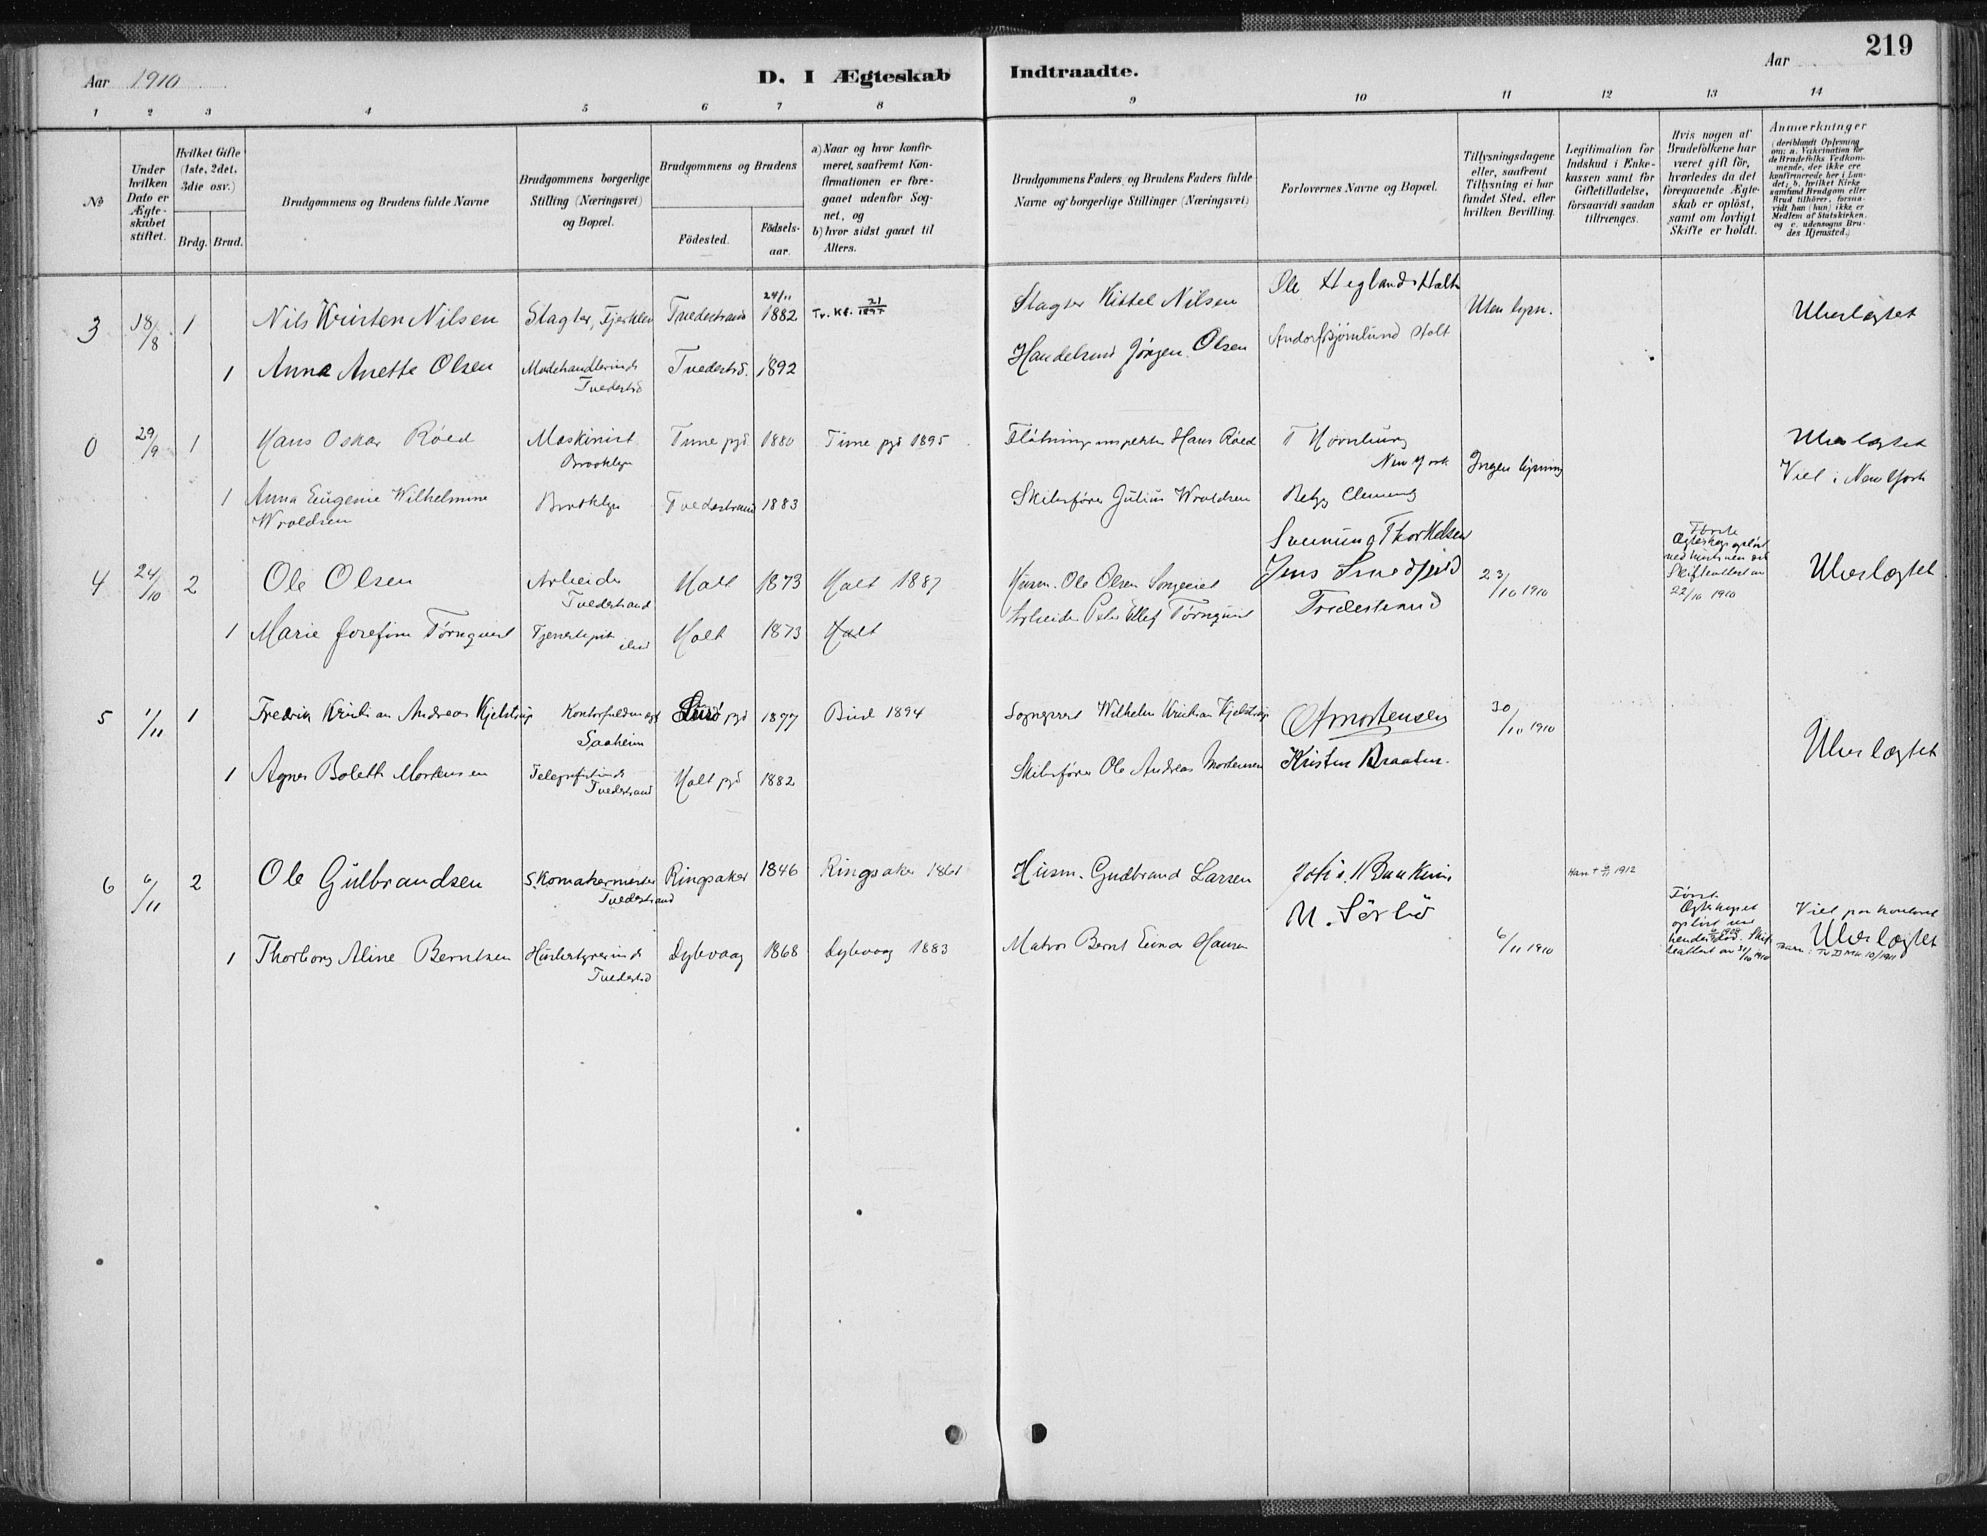 Aar 1910
D. I Ægteskab Indtraadte.
Aar
219
1 2 3 4 5 6 7 8 9 10 11 12 13 14
№
Under hvilken Dato er Ægteskabet stiftet.
Hvilket Gifte (1ste, 2det, 3die osv.)
Brdg. Brud.
Brudgommens og Brudens fulde Navne
Brudgommens borgerlige Stilling (Næringsvei) og Bopæl.
Brudgommens og Brudens
Fødested.
Fødselsaar.
a) Naar og hvor konfirmeret, saafremt Konfirmationen er foregaaet udenfor Sognet, og
b) hvor sidst gaaet til Alters.
Brudgommens Faders og Brudens Faders fulde Navne og borgerlige Stillinger (Næringsvei)
Forlovernes Navne og Bopæl.
Tillysningsdagene eller, saafremt Tillysning ei har fundet Sted, efter hvilken Bevilling.
Legitimation for Indskud i Enkekassen samt for Giftetilladelse, forsaavidt saadan tiltrænges.
Hvis nogen af Brudefolkene har været gift før, hvorledes da det foregaaende Ægteskab er opløst, samt om lovligt Skifte er holdt.
Anmærkninger (deriblandt Oplysning om: a. Vakcination for de Brudefolks Vedkommende, der ikke ere konfirmerede her i Landet; b. hvilket Kirkesamfund Brudgom eller Brud tilhører, forsaavidt han (hun) ikke er Medlem af Statskirken, og c. udensogns Brudes Hjemsted.)
3 18/8 1 Nils Kristen Nilsen Slagter, Fjerklev Tvedestrand 24/11 1882 Tv. Kf. 21/1897 Slagter Kittel Nilsen Ole Hegland Holt Uten lysn. Uberlegtet
Andorf Bjørnlund Holt
1 Anna Anette Olsen Modehandlerinde Tvedestrd. Tvedestrd. 1892 Handelsmd Jørgen Olsen
0 29/9 1 Hans Oskar Røed Maskinist Brooklyn Tune pgd 1880 Tune pgd 1895 Fløtningsinspektør Hans Røed T Hornburg New York Ingen lysning
Viet i New York
1 Anna Eugenie Wilhelmine Wroldsen Brooklyn Tvedestrand 1883 Skibsfører Julius Wroldsen Betzy Clemens
4 24/10 2 Ole Olsen Arbeider Tvedestrand Holt 1873 Holt 1887 Husm. Ole Olsen Songeeiet Svenung Thorkelsen
Jens Smedfjeld
Tvedestrand
23/10 1910
Første Ægteskap opløst ved hustruens død Skifteattest av 22/10 1910
1 Marie Josefine Tørnquist Tjenestepike ibid Holt 1873 Holt Arbeider Peter Ellef Tørnquist
5 1/11 1 Fredrik Kristian Andreas Kjelstrup Kontorfuldmægt Saaheim Lurø pgd 1877 Bud 1894 Sogneprest Wilhelm Kristian Kjelstrup O A Mortensen 30/10 1910
1 Agnes Bolette Mortensen Telegrafistinde Tvedestrand Holt pgd 1882 Skibsfører Ole Andreas Mortensen Kristen Braaten.
6 6/11 2 Ole Gulbrandsen Skomakermester Tvedestrand Ringsaker 1846 Ringsaker 1861 Husm. Gudbrand Larsen
M. Sørbø
Han + 9/11 1912
Første Ægteskapet opløst ved hendes død. Skifteattest av 31/10 1910
Viet paa kontoret
1 Thorborg Aline Berntsen Husbestyrerinde Tvedestrd Dybvaag 1868 Dybvaag 1883 Matros Bernt Einar Hansen 6/11 1910